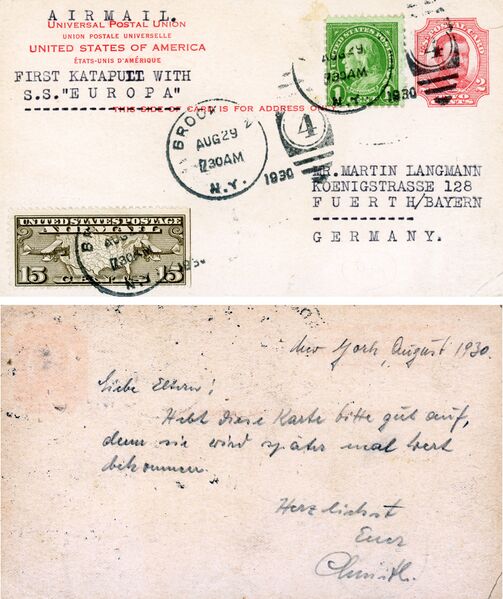 AIRMAIL.
UNIVERSAL POSTAL UNION
UNION POSTALE UNIVERSELLE
UNITED STATES OF AMERICA
ÉTATS-UNIS D'AMÉRIQUE
FIRST KATAPULT WITH
S.S."EUROPA"
THIS SIDE OF CARD IS FOR ADDRESS
UNITED STATES POSTAGE
1 1
N.Y.
1930
4
2
BROOK
AUG 29
730AM
N.Y.
4
1930
MR. MARTIN LANGMANN
KOENIGSTRASSE 128
FUERTH/BAYERN
GERMANY.
UNITED STATES POSTAGE
AIR MAIL
15 CENTS 15
730AM
N.Y.
New York, August 1930
Liebe Eltern!
Hebt diese Karte bitte gut auf,
denn sie wird später mal Wert
bekommen.
Herzlichst
Euer